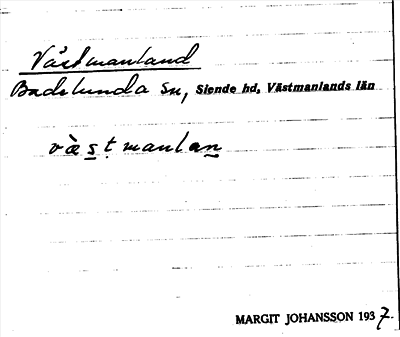 Västmanland
Badelunda sn, Siende hd, Västmanlands län
væ̀s̲ṭmanlan̲
MARGIT JOHANSSON 1937.